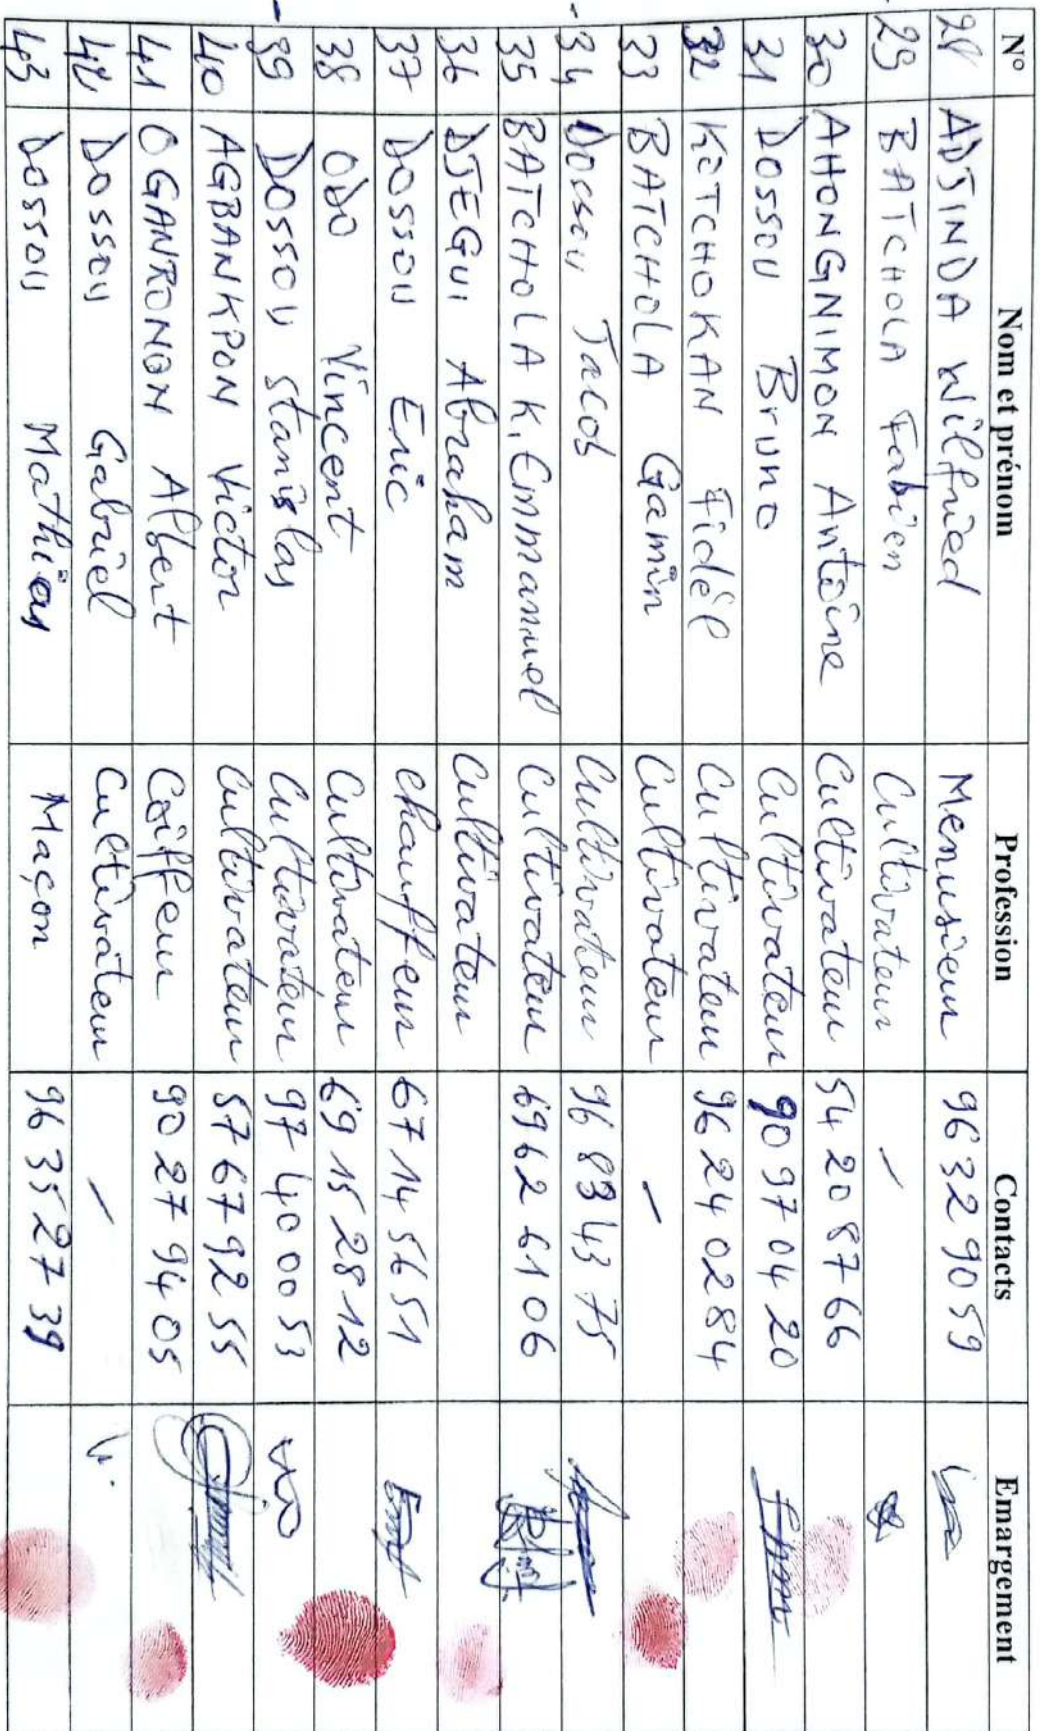 N° Nom et prénom Profession Contacts Emargement
28 ADJINDA Wilfried Menuisier 96 32 90 59
29 BATCHOLA Fabien Cultivateur /
30 AHONGNIMON Antoine Cultivateur 54 20 87 66
31 Dossou Bruno Cultivateur 90 97 04 20
32 KOTCHOKAN Fidèl Cultivateur 96 24 02 84
33 BATCHOLA Gamin Cultivateur /
34 Dossou Jacob Cultivateur 96 83 43 75
35 BATCHOLA K. Emmanuel Cultivateur 69 62 61 06
36 DJEGUI Abraham Cultivateur
37 Dossou Eric chauffeur 67 14 56 51
38 ODO Vincent Cultivateur 69 15 28 12
39 Dossou Stanislas Cultivateur 97 40 00 53
40 AGBANKPON Victor Cultivateur 57 67 92 55
41 OGANRONON Albert Coiffeur 90 27 94 05
42 Dossou Gabriel Cultivateur /
43 Dossou Mathias Maçon 96 35 27 39